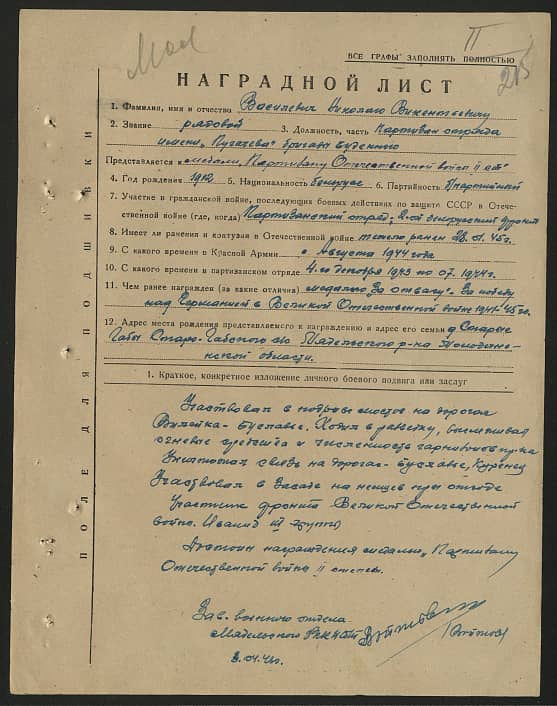 Мол
II
215
ВСЕ ГРАФЫ ЗАПОЛНЯТЬ ПОЛНОСТЬЮ
НАГРАДНОЙ ЛИСТ
1. Фамилия, имя и отчество Василевич Николаю Викентьевичу
2. Звание рядовой 3. Должность, часть Партизан отряда
имени „Пугачева" бригады Буденного
Представляется к медали „Партизану Отечественной войны II ст"
4. Год рождения 1912 5. Национальность белорус 6. Партийность б/партийный
7. Участие в гражданской войне, последующих боевых действиях по защите СССР в Отече-
ственной войне (где, когда) Партизанский отряд, 2-ой белорусский фронт
8. Имеет ли ранения и контузии в Отечественной войне тяжело ранен 28.01.45г.
9. С какого времени в Красной Армии с Августа 1944 года
10. С какого времени в партизанском отряде 4го декабря 1943 по 07.1944г.
11. Чем ранее награжден (за какие отличия) медалью За отвагу. За победу
над Германией в Великой Отечественной войне 1941-45гг.
12. Адрес места рождения представляемого к награждению и адрес его семьи д. Старые
Габы Старо-Габского с/с Мядельского р-на Молодечне-
нской области.
1. Краткое, конкретное изложение личного боевого подвига или заслуг
Участвовал в подрыве мостов на дорогах
Вилейка - Буславье. Ходил в разведку, высматривал
огневые средства и численность гарнизонов пр-ка
Уничтожал связь на дорогах - Буславье, Куренец
Участвовал в засаде на немцев при отходе
Участник фронта Великой Отечественной
войны. Инвалид III группы
Достоин награждения медалью „Партизану
Отечественной войны II степени.
Зав. военного отдела
Мядельского РККПБ
3.04.48г.
ПОЛЕ ДЛЯ ПОДШИВКИ